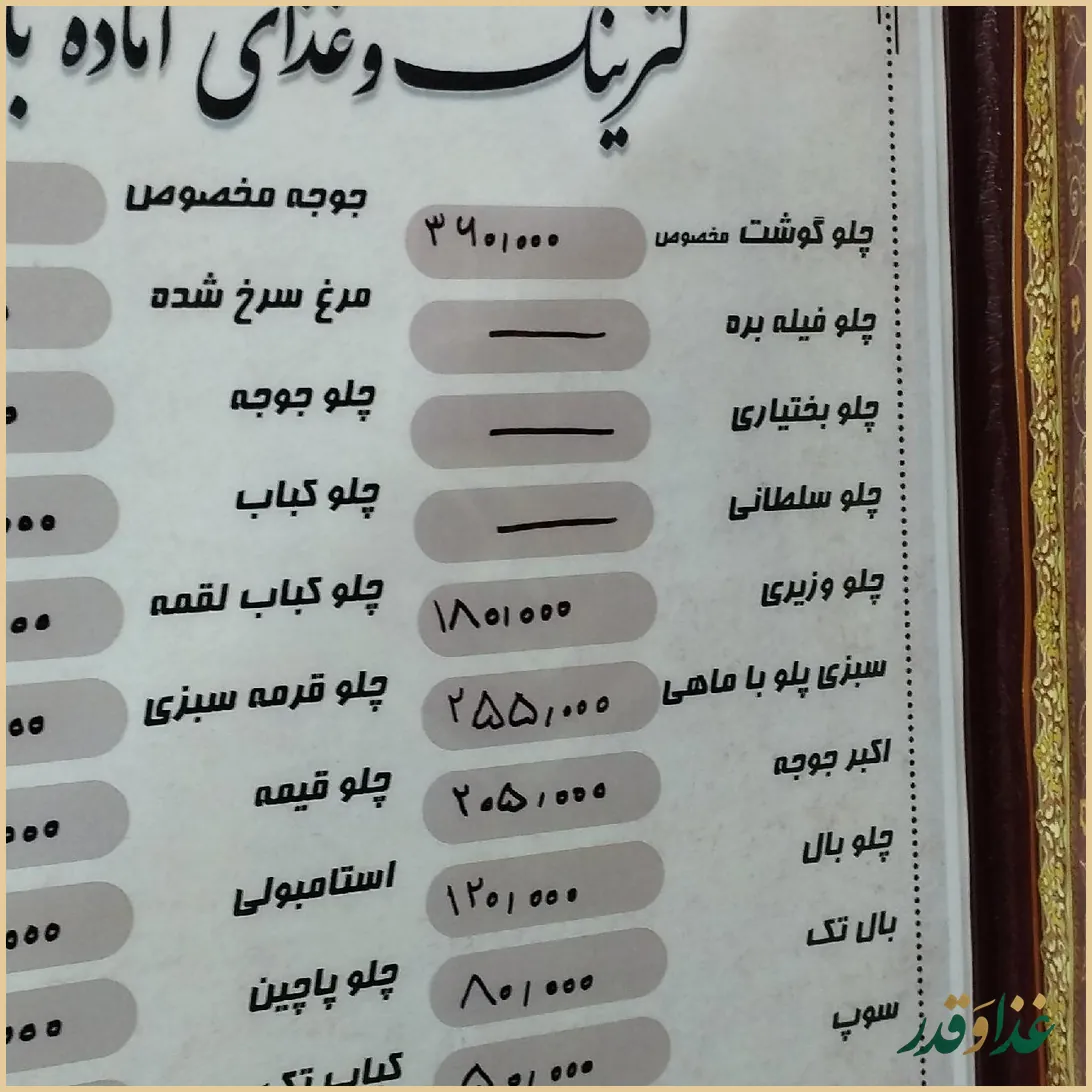 کترینگ و غذای آماده
چلو گوشت مخصوص ۳۶۰,۰۰۰
چلو فیله بره —
چلو بختیاری —
چلو سلطانی —
چلو وزیری ۱۸۰,۰۰۰
سبزی پلو با ماهی ۲۵۵,۰۰۰
اکبر جوجه ۲۰۵,۰۰۰
چلو بال ۱۲۰,۰۰۰
بال تک ۸۰,۰۰۰
سوپ ۵۰,۰۰۰
جوجه مخصوص
مرغ سرخ شده
چلو جوجه
چلو کباب
چلو کباب لقمه
چلو قرمه سبزی
چلو قیمه
استامبولی
چلو پاچین
کباب تک
غذا و قدر